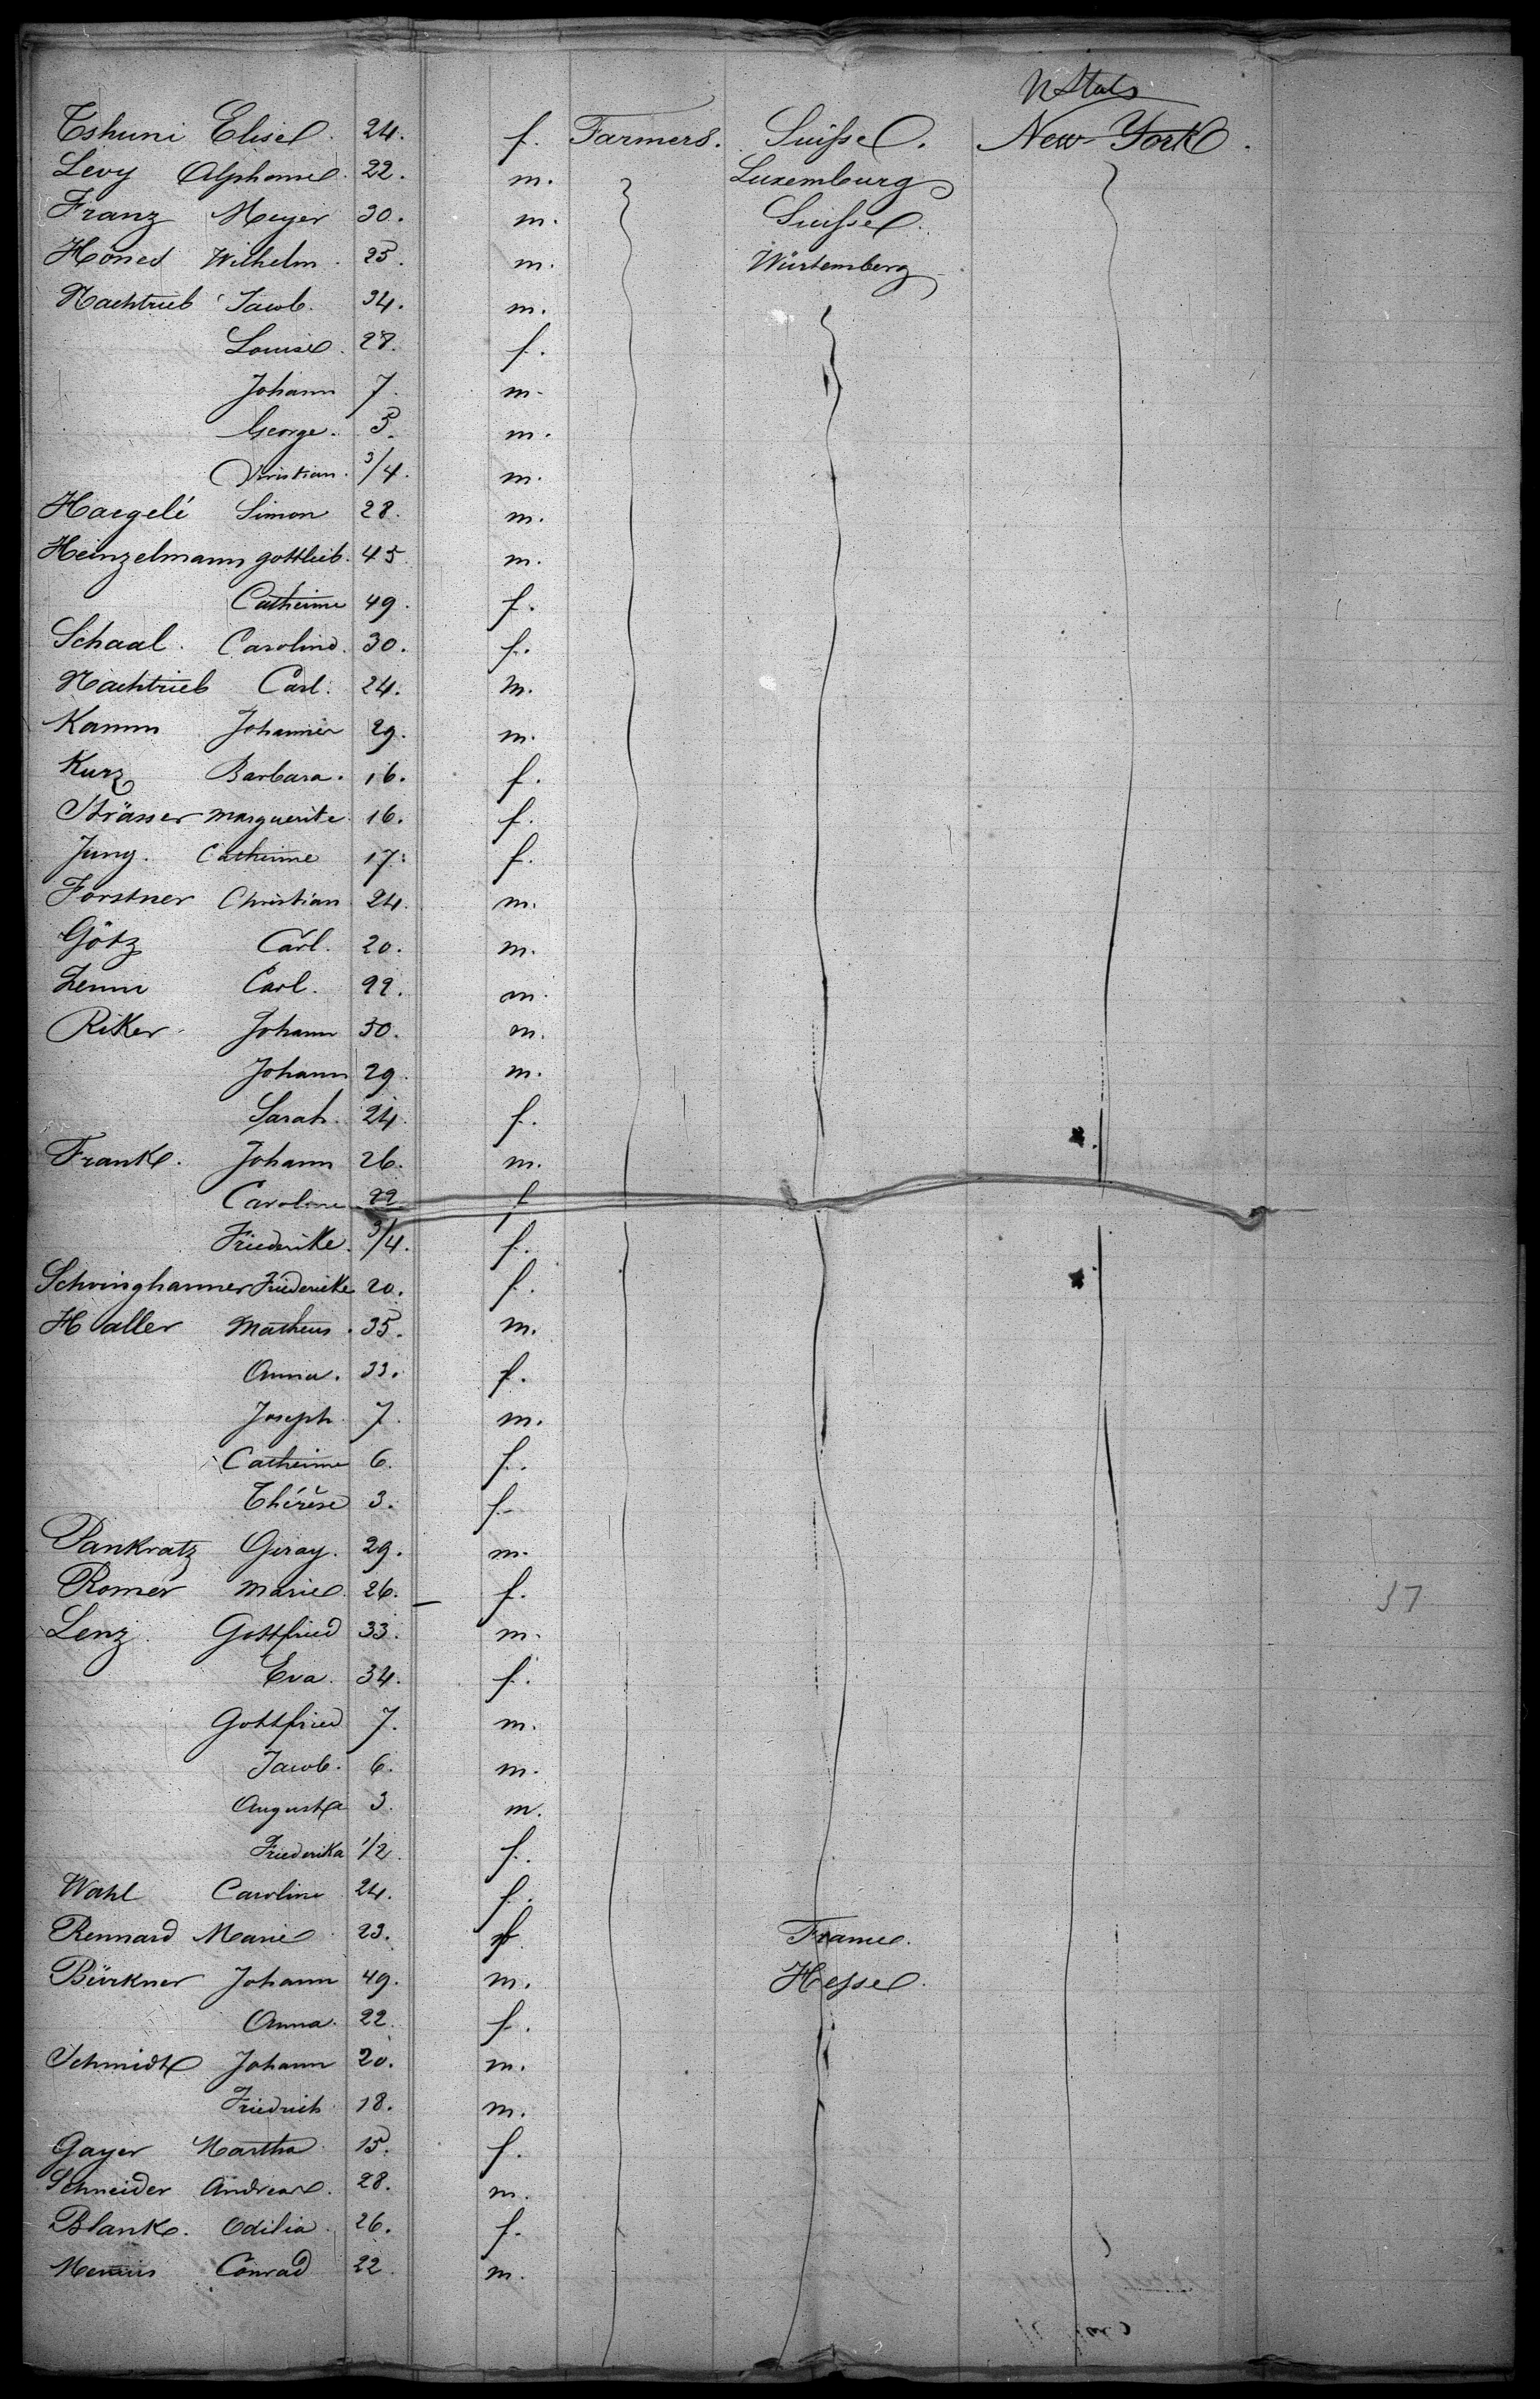 U States
Tshuni Elise. 24. f. Farmers. Suisse. New-York.
Levy Alphonse. 22. m. Luxemburg
Franz Meyer 30. m. Suisse.
Hönes Wilhelm. 25. m. Würtemberg
Nachtrieb Jacob. 34. m.
Louise. 28. f.
Johann 7. m.
George. 5. m.
Christian. 3/4. m.
Haegelé Simon 28. m.
Heinzelmann Gottlieb. 45. m.
Catherine 49. f.
Schaal. Caroline. 30. f.
Nachtrieb Carl. 24. m.
Kamm Johannes 29. m.
Kurz Barbara. 16. f.
Strässer Marguerite. 16. f.
Jung. Catherine 17. f.
Forstner Christian 24. m.
Götz Carl. 20. m.
Carl. 22. m.
Riker. Johann 30. m.
Johann 29. m.
Sarah. 24. f.
Frank. Johann 26. m.
Caroline 22 f
Friederike. 3/4. f.
Schvinghammer Friedericke 20. f.
Haller Matheus. 35. m.
Anna. 33. f.
Joseph. 7. m.
Catherine 6. f.
Thérèse 3. f.
Pankratz 29. m.
Romer Marie. 26. f.
37
Lenz. Gottfried 33. m.
Eva. 34. f.
Gottfried 7. m.
Jacob. 6. m.
Auguste 3. m.
Friederika 1/2. f.
Wahl Caroline 24. f.
Rennard Marie 23. f. France.
Bürkner Johann 49. m. Hesse.
Anna. 22. f.
Schmidt Johann 20. m.
Friedrich 18. m.
Gayer Martha. 15. f.
Schneider Andreas. 28. m.
Blank. Odilia. 26. f.
Conrad 22. m.